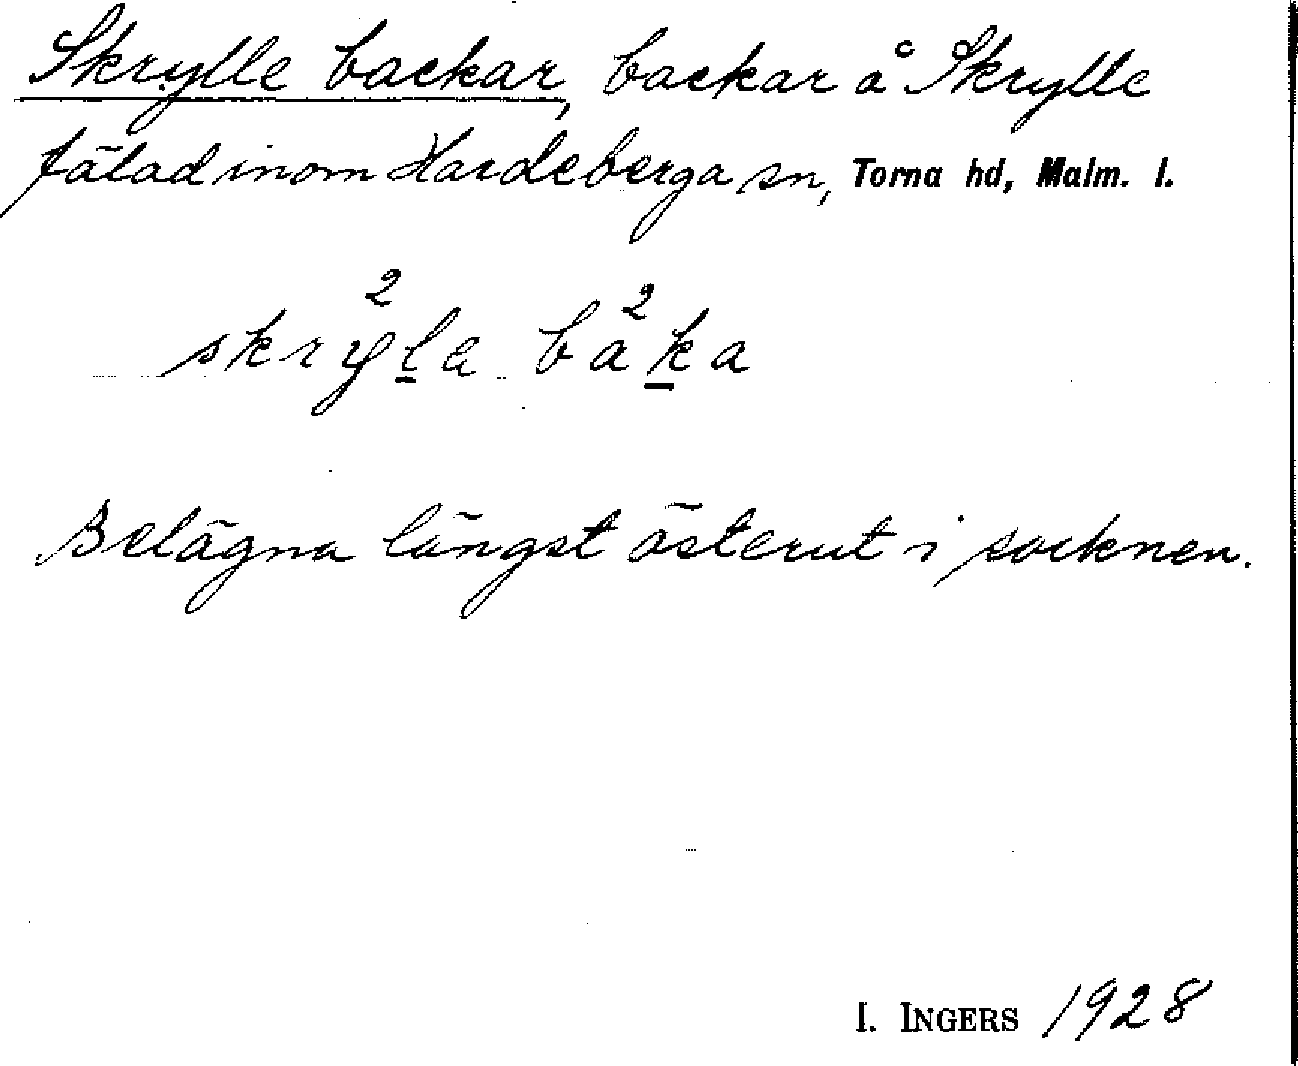 Skrylle backar, backar å Skrylle
fälad inom Hardeberga sn, Torna hd, Malm. l.
skry²l̲a ba²k̲a
Belägna längst österut i socknen.
I. INGERS 1928